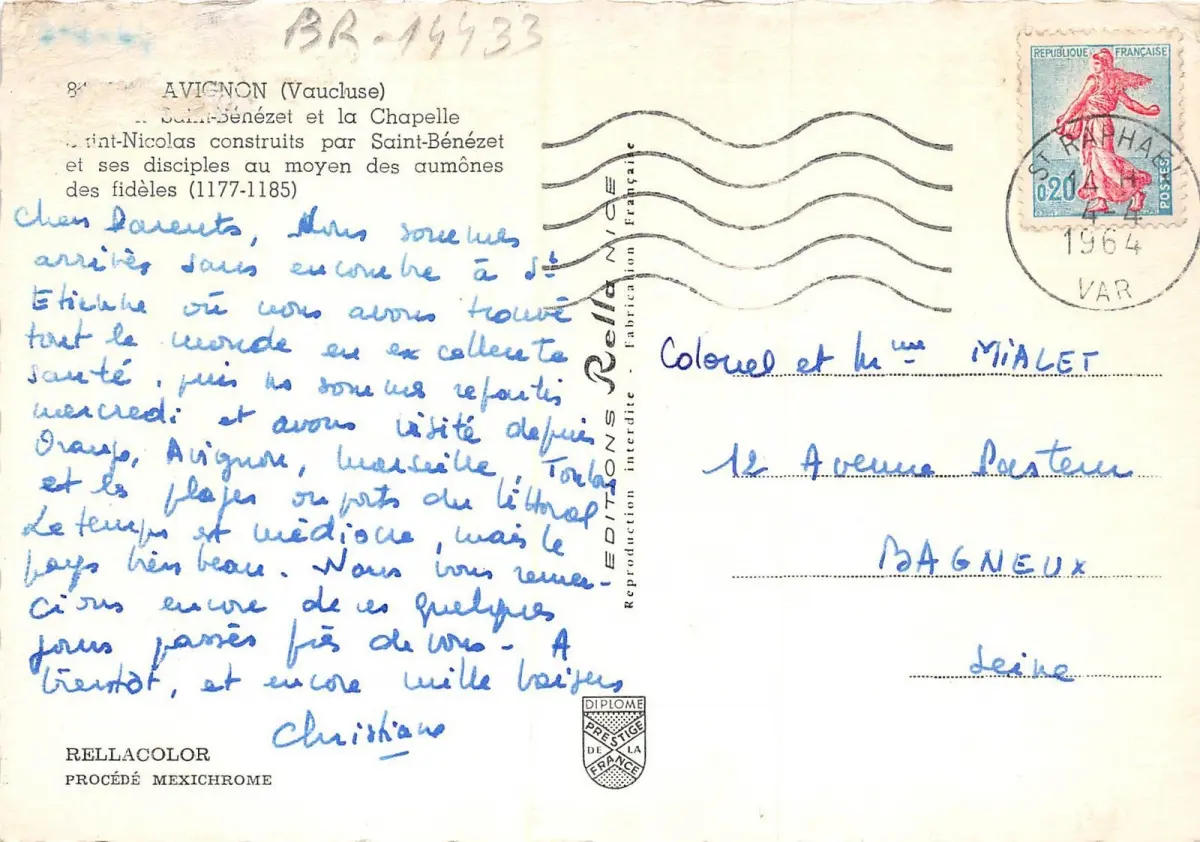 BR-14433
AVIGNON (Vaucluse)
Saint-Bénézet et la Chapelle
Saint-Nicolas construits par Saint-Bénézet
et ses disciples au moyen des aumônes
des fidèles (1177-1185)
Chers Parents, Nous sommes
arrivés sans encombre à St
Etienne où nous avons trouvé
tout le monde en excellente
santé, puis ns sommes repartis
mercredi et avons visité depuis
Orange, Avignon, Marseille, Toulon
et les plages ou ports du littoral
Le temps est médiocre, mais le
pays très beau. Nous vous remer-
cions encore de ces quelques
jours passés près de vous - A
bientôt, et encore mille baisers
Christiane
RELLACOLOR
PROCÉDÉ MEXICHROME
EDITIONS Rella NICE
Reproduction interdite - Fabrication Française
DIPLOME
PRESTIGE
DE LA
FRANCE
REPUBLIQUE FRANÇAISE
0,20
POSTES
ST RAPHAEL
14 H
4-4
1964
VAR
Colonel et Mme MIALET
12 Avenue Pasteur
BAGNEUX
Seine